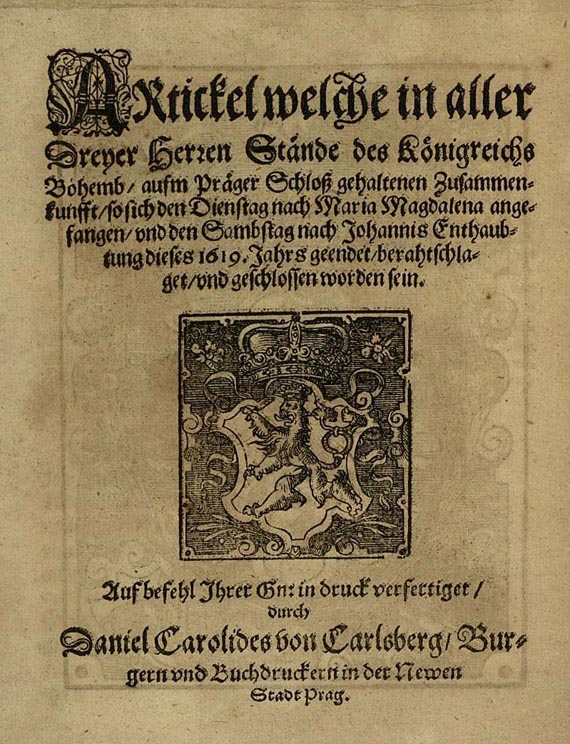 ARtickel welche in aller
Dreyer Herren Stände des Königreichs
Böhemb/ aufm Präger Schloß gehaltenen Zusammen-
kunfft/ so sich den Dienstag nach Maria Magdalena ange-
fangen/ vnd den Sambstag nach Johannis Enthaub-
tung dieses 1619. Jahrs geendet/ berahtschla-
get/ vnd geschlossen worden sein.
Auf befehl Ihrer Gn: in druck verfertiget/
durch
Daniel Carolides von Carlsberg/ Bur-
gern vnd Buchdruckern in der Newen
Stadt Prag.